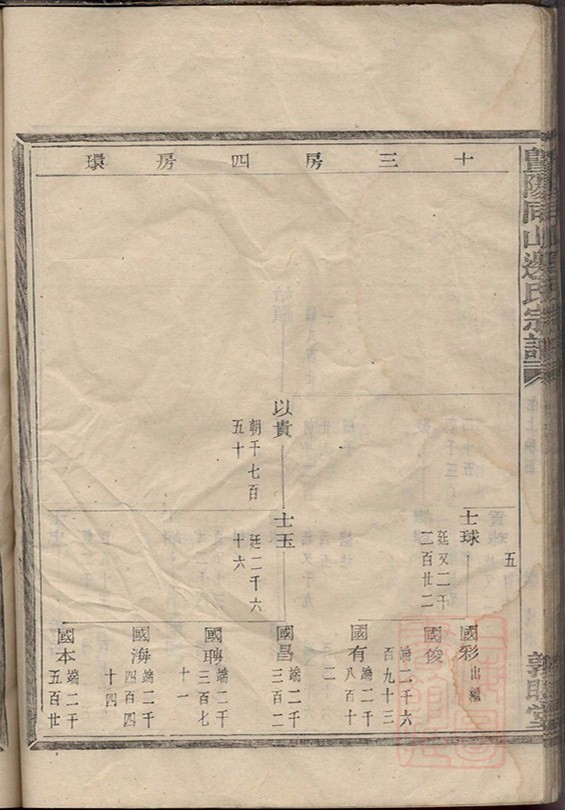 暨陽同山邊氏宗譜
敦睦堂
十三房四房環
士球
廷又二千
二百廿二
五
國彩
出繼
國俊
端二千六
百九十三
以貴
朝于七百
五十
士玉
廷二千六
十六
國有
端二千
八百十
國昌
端二千
三百二
國聘
端二千
三百七
十一
國海
端二千
四百四
十四
國本
端二千
五百廿